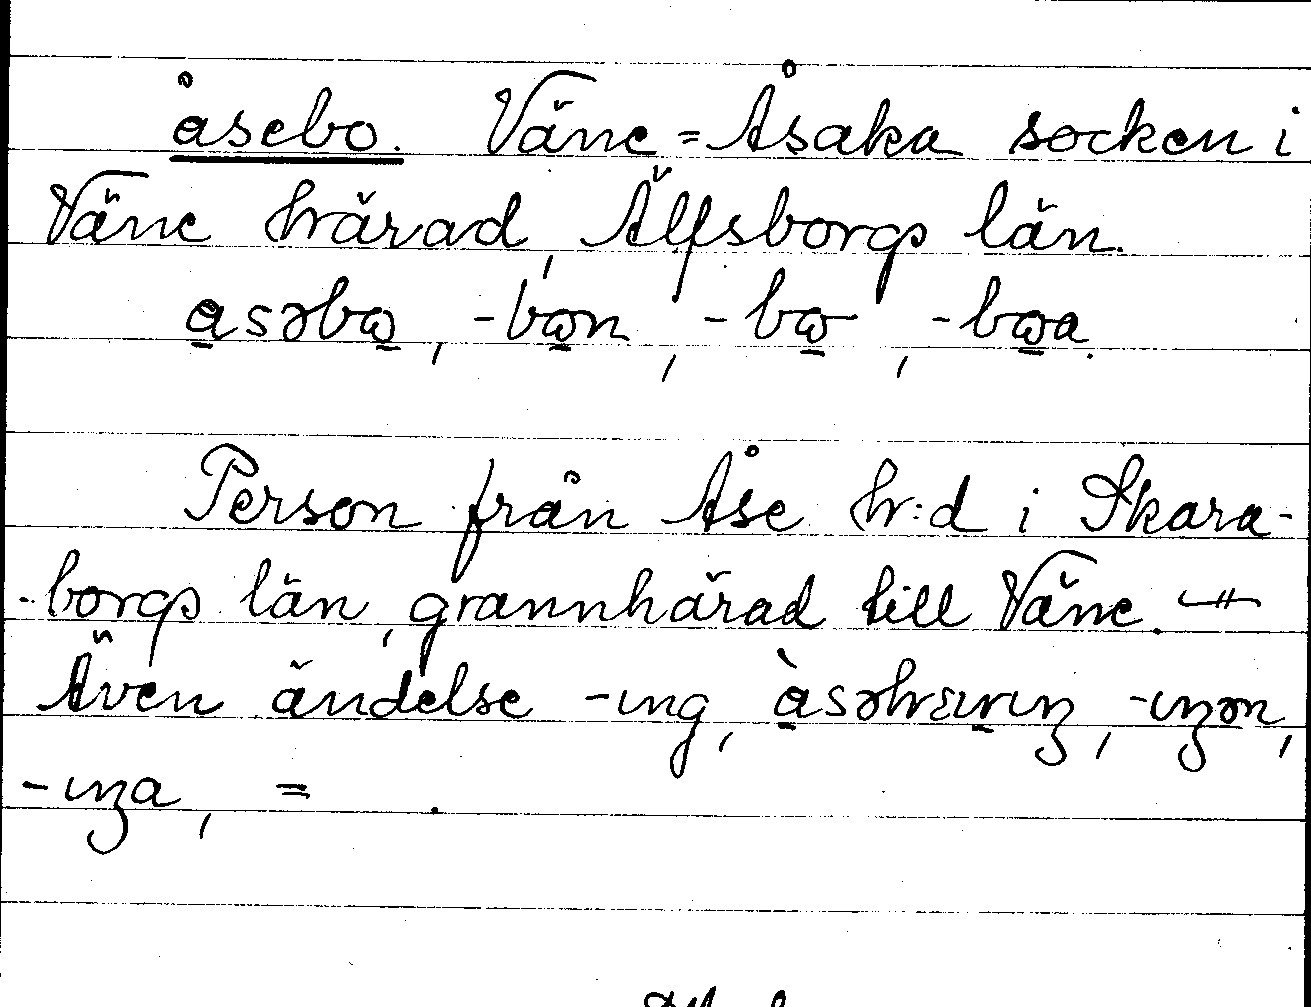 åsebo. Väne=Åsaka socken i
Väne härad, Älfsborgs län.
a̲səbω̲, -bω̲n, -bω̲, -bω̲a.
Person från Åse hr:d i Skara-
-borgs län, grannhärad till Väne.
Även ändelse -ing,
=